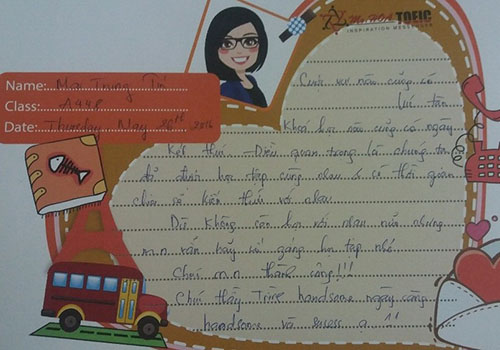 Ms Hoa TOEIC
INSPIRATION MESSENGER
Name: Mai Trung
Class: A448
Date: Thursday May 26th 2016
Cuộc vui nào cũng có
lúc tàn
Khoá học nào cũng có ngày
Kết thúc - Điều quan trọng là chúng ta
đã được học tập cùng nhau & có thời gian
chia sẻ kiến thức với nhau
Dù không còn học với nhau nữa nhưng
m.n vẫn hãy cố gắng học tập nhé.
Chúc m.n thành công!!!
Chúc thầy handsome ngày càng
handsome và success ạ !!